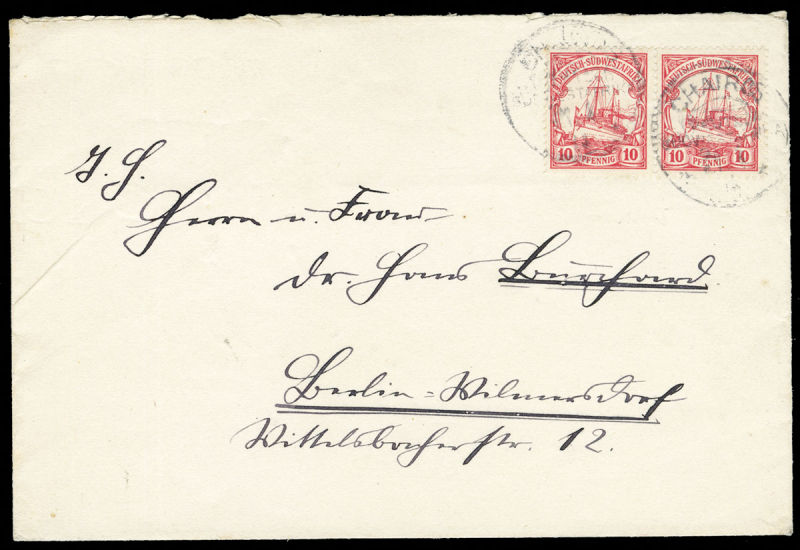 DEUTSCH-SÜDWESTAFRIKA DEUTSCH-SÜDWESTAFRIKA
10 PFENNIG 10 10 PFENNIG 10
J. H.
Herrn u. Frau
Dr. Hans Burchard
Berlin-Wilmersdorf
Wittelsbacherstr. 12.